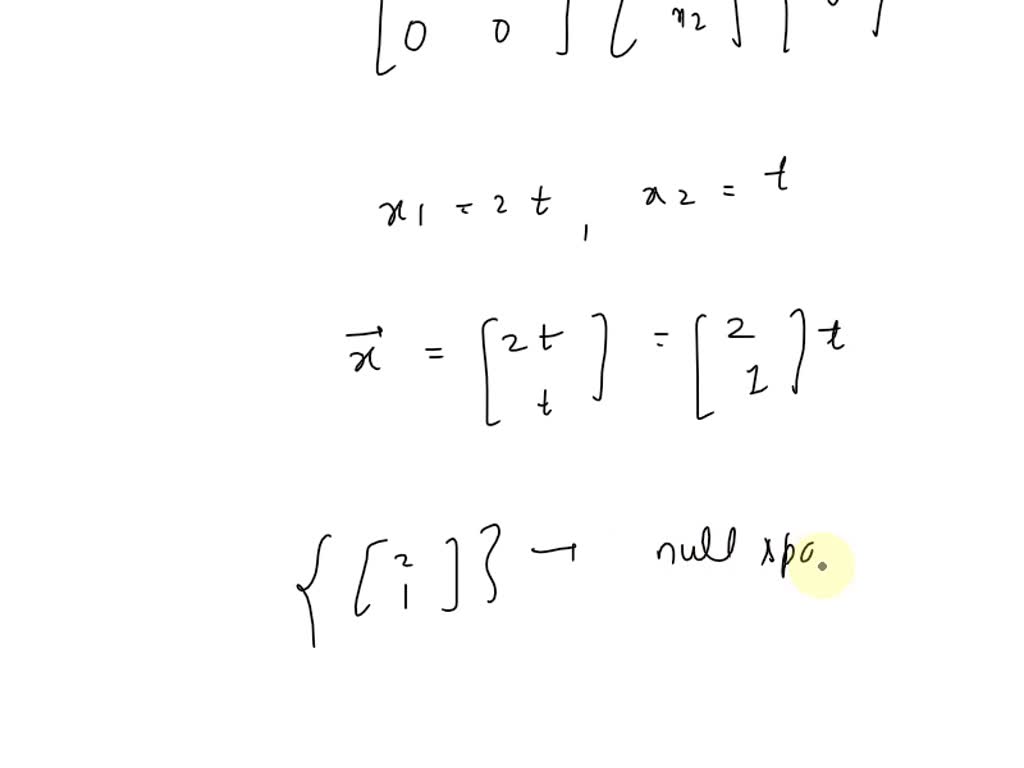 [ 0 0 ] [ x2 ] [ ]
x1 = 2t , x2 = t
x⃗ = [ 2t t ] = [ 2 1 ] t
{ [ 2 1 ] } → null spa